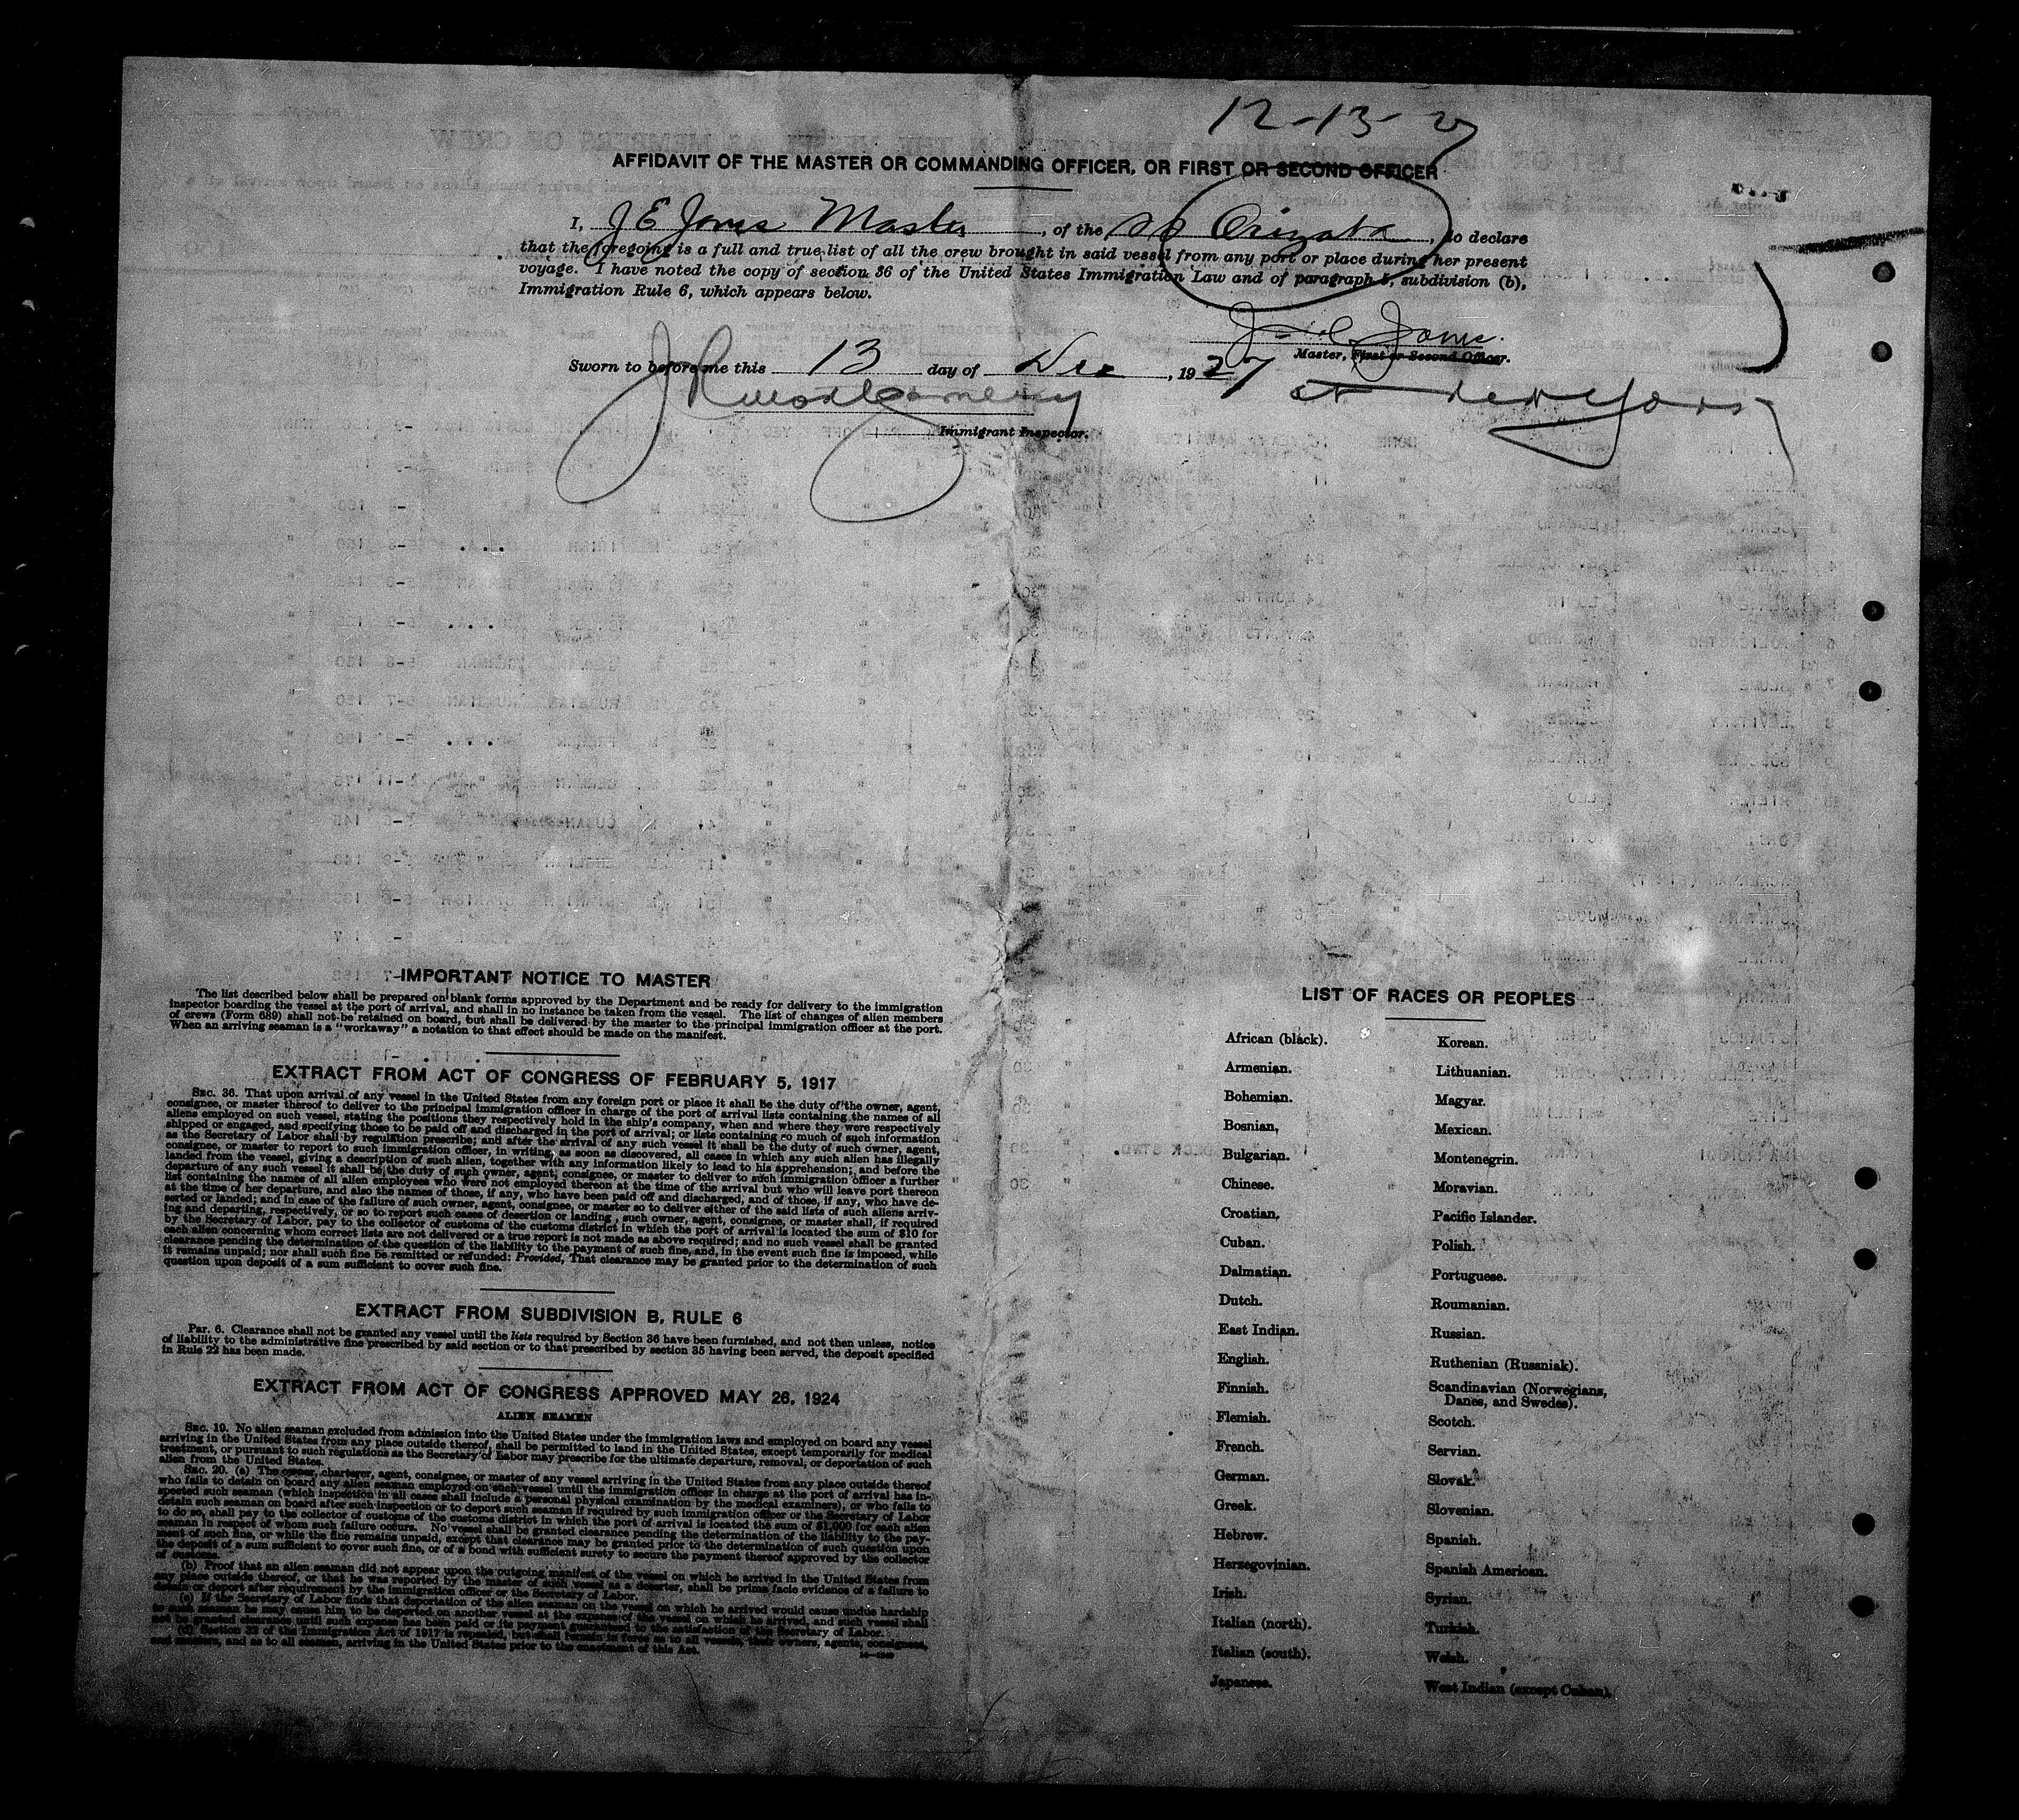 12-13-27
AFFIDAVIT OF THE MASTER OR COMMANDING OFFICER, OR FIRST OR SECOND OFFICER
I, J E Jones Master, of the SS Orizaba, do declare
that the foregoing is a full and true list of all the crew brought in said vessel from any port or place during her present
voyage. I have noted the copy of section 36 of the United States Immigration Law and of paragraph 5, subdivision (b),
Immigration Rule 6, which appears below.
J. E. Jones.
Master, First or Second Officer.
Sworn to before me this 13 day of Dec, 1927
at New York
J R Montgomery
Immigrant Inspector.
IMPORTANT NOTICE TO MASTER
The list described below shall be prepared on blank forms approved by the Department and be ready for delivery to the immigration
inspector boarding the vessel at the port of arrival, and shall in no instance be taken from the vessel. The list of changes of alien members
of crews (Form 689) shall not be retained on board, but shall be delivered by the master to the principal immigration officer at the port.
When an arriving seaman is a "workaway" a notation to that effect should be made on the manifest.
EXTRACT FROM ACT OF CONGRESS OF FEBRUARY 5, 1917
SEC. 36. That upon arrival of any vessel in the United States from any foreign port or place it shall be the duty of the owner, agent,
consignee, or master thereof to deliver to the principal immigration officer in charge of the port of arrival lists containing the names of all
aliens employed on such vessel, stating the positions they respectively hold in the ship's company, when and where they were respectively
shipped or engaged, and specifying those to be paid off and discharged in the port of arrival; or lists containing so much of such information
as the Secretary of Labor shall by regulation prescribe; and after the arrival of any such vessel it shall be the duty of such owner, agent,
consignee, or master to report to such immigration officer, in writing, as soon as discovered, all cases in which any such alien has illegally
landed from the vessel, giving a description of such alien, together with any information likely to lead to his apprehension; and before the
departure of any such vessel it shall be the duty of such owner, agent, consignee, or master to deliver to such immigration officer a further
list containing the names of all alien employees who were not employed thereon at the time of the arrival but who will leave port thereon
at the time of her departure, and also the names of those, if any, who have been paid off and discharged, and of those, if any, who have de-
serted or landed; and in case of the failure of such owner, agent, consignee, or master so to deliver either of the said lists of such aliens arriv-
ing and departing, respectively, or so to report such cases of desertion or landing, such owner, agent, consignee, or master shall, if required
by the Secretary of Labor, pay to the collector of customs of the customs district in which the port of arrival is located the sum of $10 for
each alien concerning whom correct lists are not delivered or a true report is not made as above required; and no such vessel shall be granted
clearance pending the determination of the question of the liability to the payment of such fine, and, in the event such fine is imposed, while
it remains unpaid; nor shall such fine be remitted or refunded: Provided, That clearance may be granted prior to the determination of such
question upon deposit of a sum sufficient to cover such fine.
EXTRACT FROM SUBDIVISION B, RULE 6
Par. 6. Clearance shall not be granted any vessel until the lists required by Section 36 have been furnished, and not then unless, notice
of liability to the administrative fine prescribed by said section or to that prescribed by section 35 having been served, the deposit specified
in Rule 22 has been made.
EXTRACT FROM ACT OF CONGRESS APPROVED MAY 26, 1924
ALIEN SEAMEN
SEC. 19. No alien seaman excluded from admission into the United States under the immigration laws and employed on board any vessel
arriving in the United States from any place outside thereof, shall be permitted to land in the United States, except temporarily for medical
treatment, or pursuant to such regulations as the Secretary of Labor may prescribe for the ultimate departure, removal, or deportation of such
alien from the United States.
SEC. 20. (a) The owner, charterer, agent, consignee, or master of any vessel arriving in the United States from any place outside thereof
who fails to detain on board any alien seaman employed on such vessel until the immigration officer in charge at the port of arrival has in-
spected such seaman (which inspection in all cases shall include a personal physical examination by the medical examiners), or who fails to
detain such seaman on board after such inspection or to deport such seaman if required by such immigration officer or the Secretary of Labor
to do so, shall pay to the collector of customs of the customs district in which the port of arrival is located the sum of $1,000 for each alien
seaman in respect of whom such failure occurs. No vessel shall be granted clearance pending the determination of the liability to the pay-
ment of such fine, or while the fine remains unpaid, except that clearance may be granted prior to the determination of such question upon
the deposit of a sum sufficient to cover such fine, or of a bond with sufficient surety to secure the payment thereof approved by the collector
of customs.
(b) Proof that an alien seaman did not appear upon the outgoing manifest of the vessel on which he arrived in the United States from
any place outside thereof, or that he was reported by the master of such vessel as a deserter, shall be prima facie evidence of a failure to
detain or deport after requirement by the immigration officer or the Secretary of Labor.
(c) If the Secretary of Labor finds that deportation of the alien seaman on the vessel on which he arrived would cause undue hardship
to such seaman he may cause him to be deported on another vessel at the expense of the vessel on which he arrived, and such vessel shall
not be granted clearance until such expense has been paid or its payment guaranteed to the satisfaction of the Secretary of Labor.
(d) Section 32 of the Immigration Act of 1917 is repealed, but shall remain in force as to all vessels, their owners, agents, consignees,
and masters, and as to all seamen, arriving in the United States prior to the enactment of this Act.
LIST OF RACES OR PEOPLES
African (black).
Armenian.
Bohemian.
Bosnian.
Bulgarian.
Chinese.
Croatian.
Cuban.
Dalmatian.
Dutch.
East Indian.
English.
Finnish.
Flemish.
French.
German.
Greek.
Hebrew.
Herzegovinian.
Irish.
Italian (north).
Italian (south).
Japanese.
Korean.
Lithuanian.
Magyar.
Mexican.
Montenegrin.
Moravian.
Pacific Islander.
Polish.
Portuguese.
Roumanian.
Russian.
Ruthenian (Russniak).
Scandinavian (Norwegians,
Danes, and Swedes).
Scotch.
Servian.
Slovak.
Slovenian.
Spanish.
Spanish American.
Syrian.
Turkish.
Welsh.
West Indian (except Cuban).